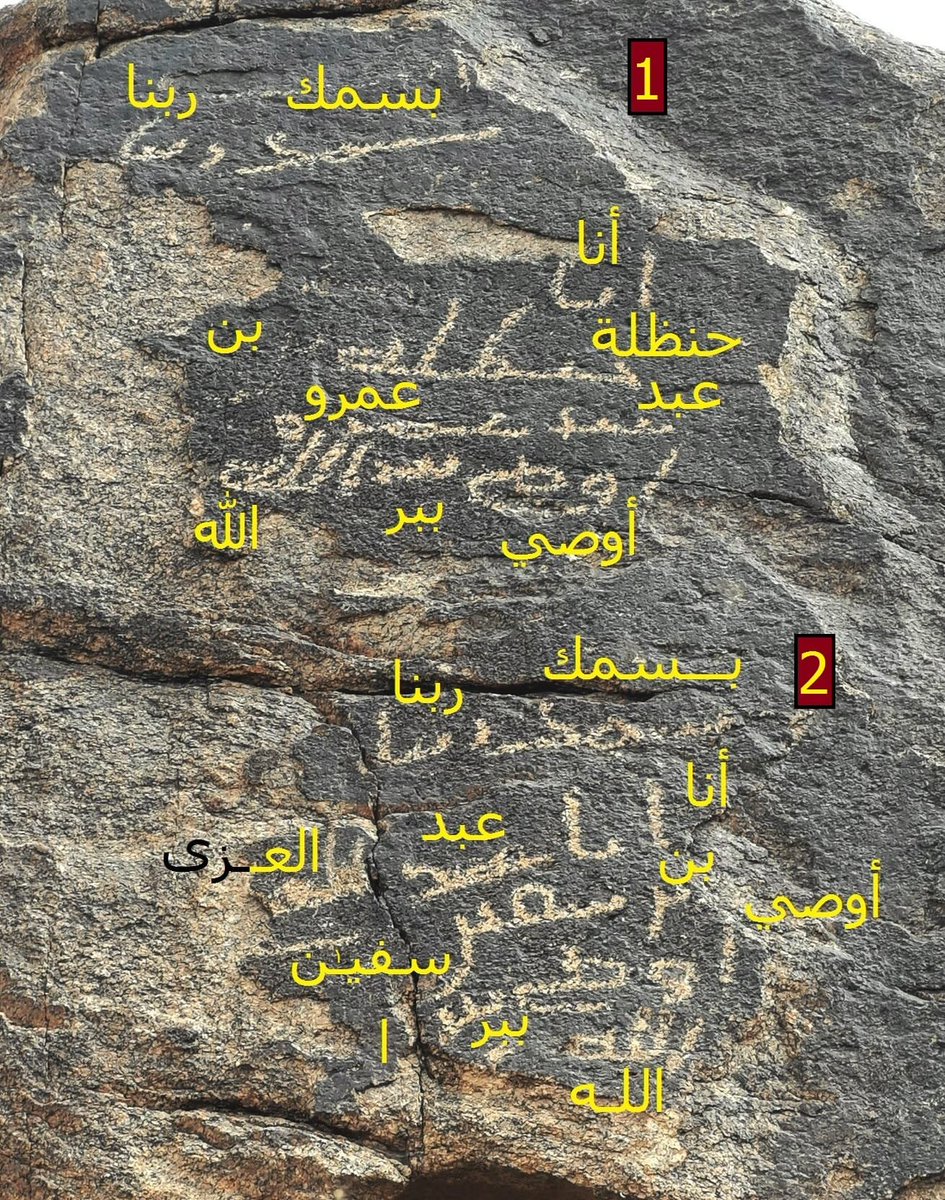 1
بسمك ربنا
أنا
حنظلة بن
عبد عمرو
أوصي ببر الله
2
بـسمك ربنا
أنا عبد العـزى
بن سفيٰن
أوصي ببر ا
اللـه